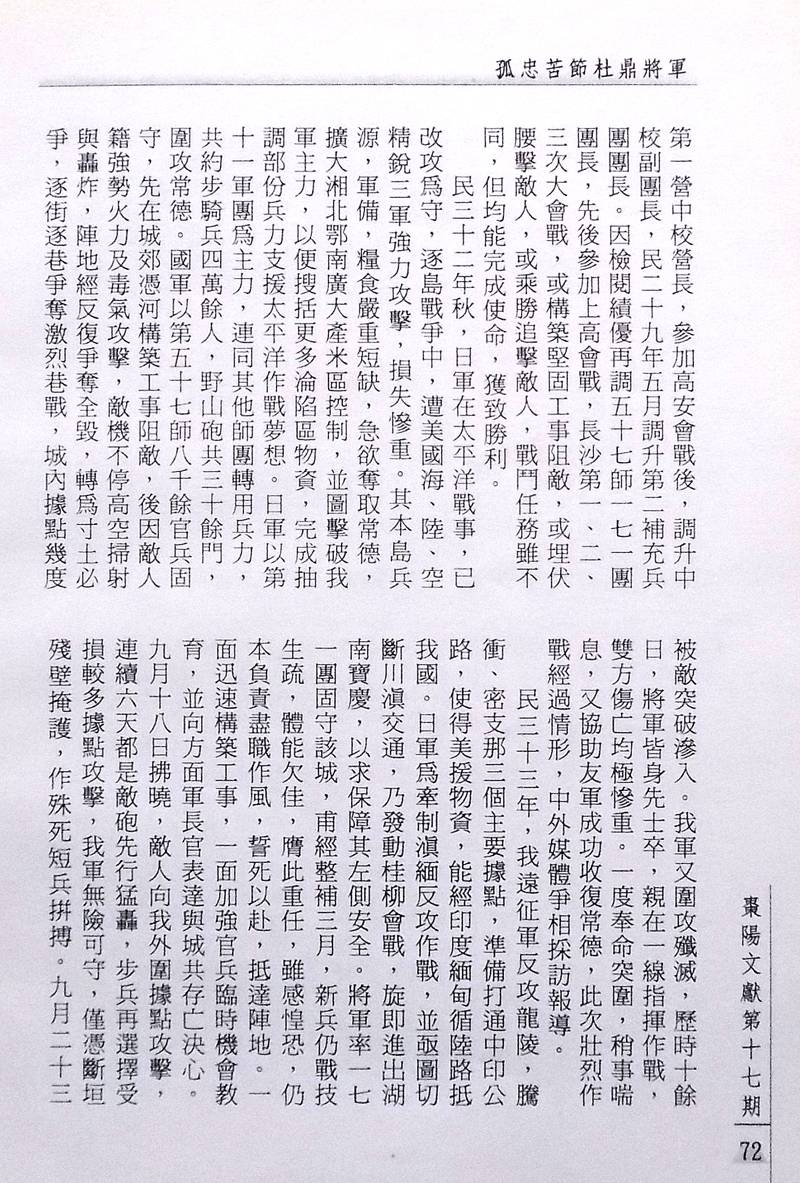 孤忠苦節杜鼎將軍
第一營中校營長，參加高安會戰後，調升中
校副團長，民二十九年五月調升第二補充兵
團團長。因檢閱績優再調五十七師一七一團
團長，先後參加上高會戰，長沙第一、二、
三次大會戰，或構築堅固工事阻敵，或埋伏
腰擊敵人，或乘勝追擊敵人，戰鬥任務雖不
同，但均能完成使命，獲致勝利。
民三十二年秋，日軍在太平洋戰事，已
改攻為守，逐島戰爭中，遭美國海、陸、空
精銳三軍強力攻擊，損失慘重。其本島兵
源，軍備，糧食嚴重短缺，急欲奪取常德，
擴大湘北鄂南廣大產米區控制，並圖擊破我
軍主力，以便搜括更多淪陷區物資，完成抽
調部份兵力支援太平洋作戰夢想。日軍以第
十一軍團為主力，連同其他師團轉用兵力，
共約步騎兵四萬餘人，野山砲共三十餘門，
圍攻常德。國軍以第五十七師八千餘官兵固
守，先在城郊憑河構築工事阻敵，後因敵人
籍強勢火力及毒氣攻擊，敵機不停高空掃射
與轟炸，陣地經反復爭奪全毀，轉為寸土必
爭，逐街逐巷爭奪激烈巷戰，城內據點幾度
被敵突破滲入。我軍又圍攻殲滅，歷時十餘
日，將軍皆身先士卒，親在一線指揮作戰，
雙方傷亡均極慘重。一度奉命突圍，稍事喘
息，又協助友軍成功收復常德，此次壯烈作
戰經過情形，中外媒體爭相採訪報導。
民三十三年，我遠征軍反攻龍陵，騰
衝、密支那三個主要據點，準備打通中印公
路，使得美援物資，能經印度緬甸循陸路抵
我國。日軍為牽制滇緬反攻作戰，並亟圖切
斷川滇交通，乃發動桂柳會戰，旋即進出湖
南寶慶，以求保障其左側安全。將軍率一七
一團固守該城，甫經整補三月，新兵仍戰技
生疏，體能欠佳，膺此重任，雖感惶恐，仍
本負責盡職作風，誓死以赴，抵達陣地。一
面迅速構築工事，一面加強官兵臨時機會教
育，並向方面軍長官表達與城共存亡決心。
九月十八日拂曉，敵人向我外圍據點攻擊，
連續六天都是敵砲先行猛轟，步兵再選擇受
損較多據點攻擊，我軍無險可守，僅憑斷垣
殘壁掩護，作殊死短兵拚搏。九月二十三
棗陽文獻第十七期
72